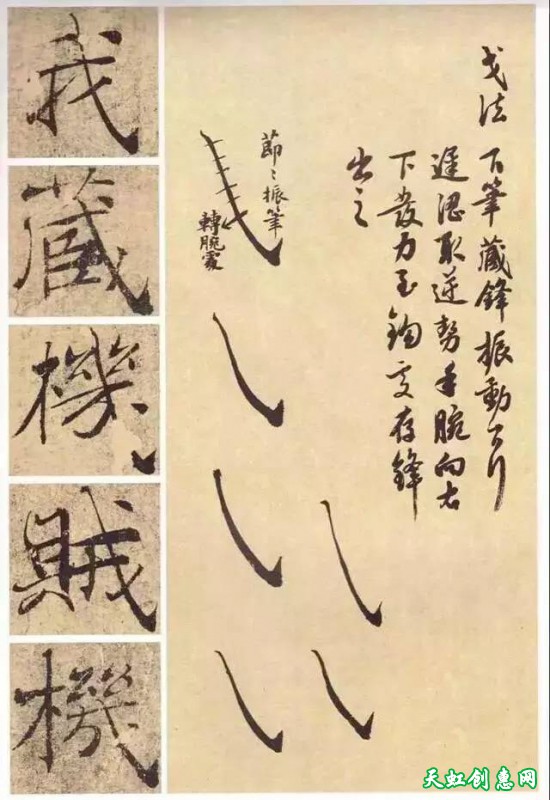 戈法 下筆藏鋒振動而行
遲澀取逆勢手腕向右
下發力至鉤處存鋒
出之
節々振筆
轉腕處
我
藏
機
賊
機
天虹创惠网